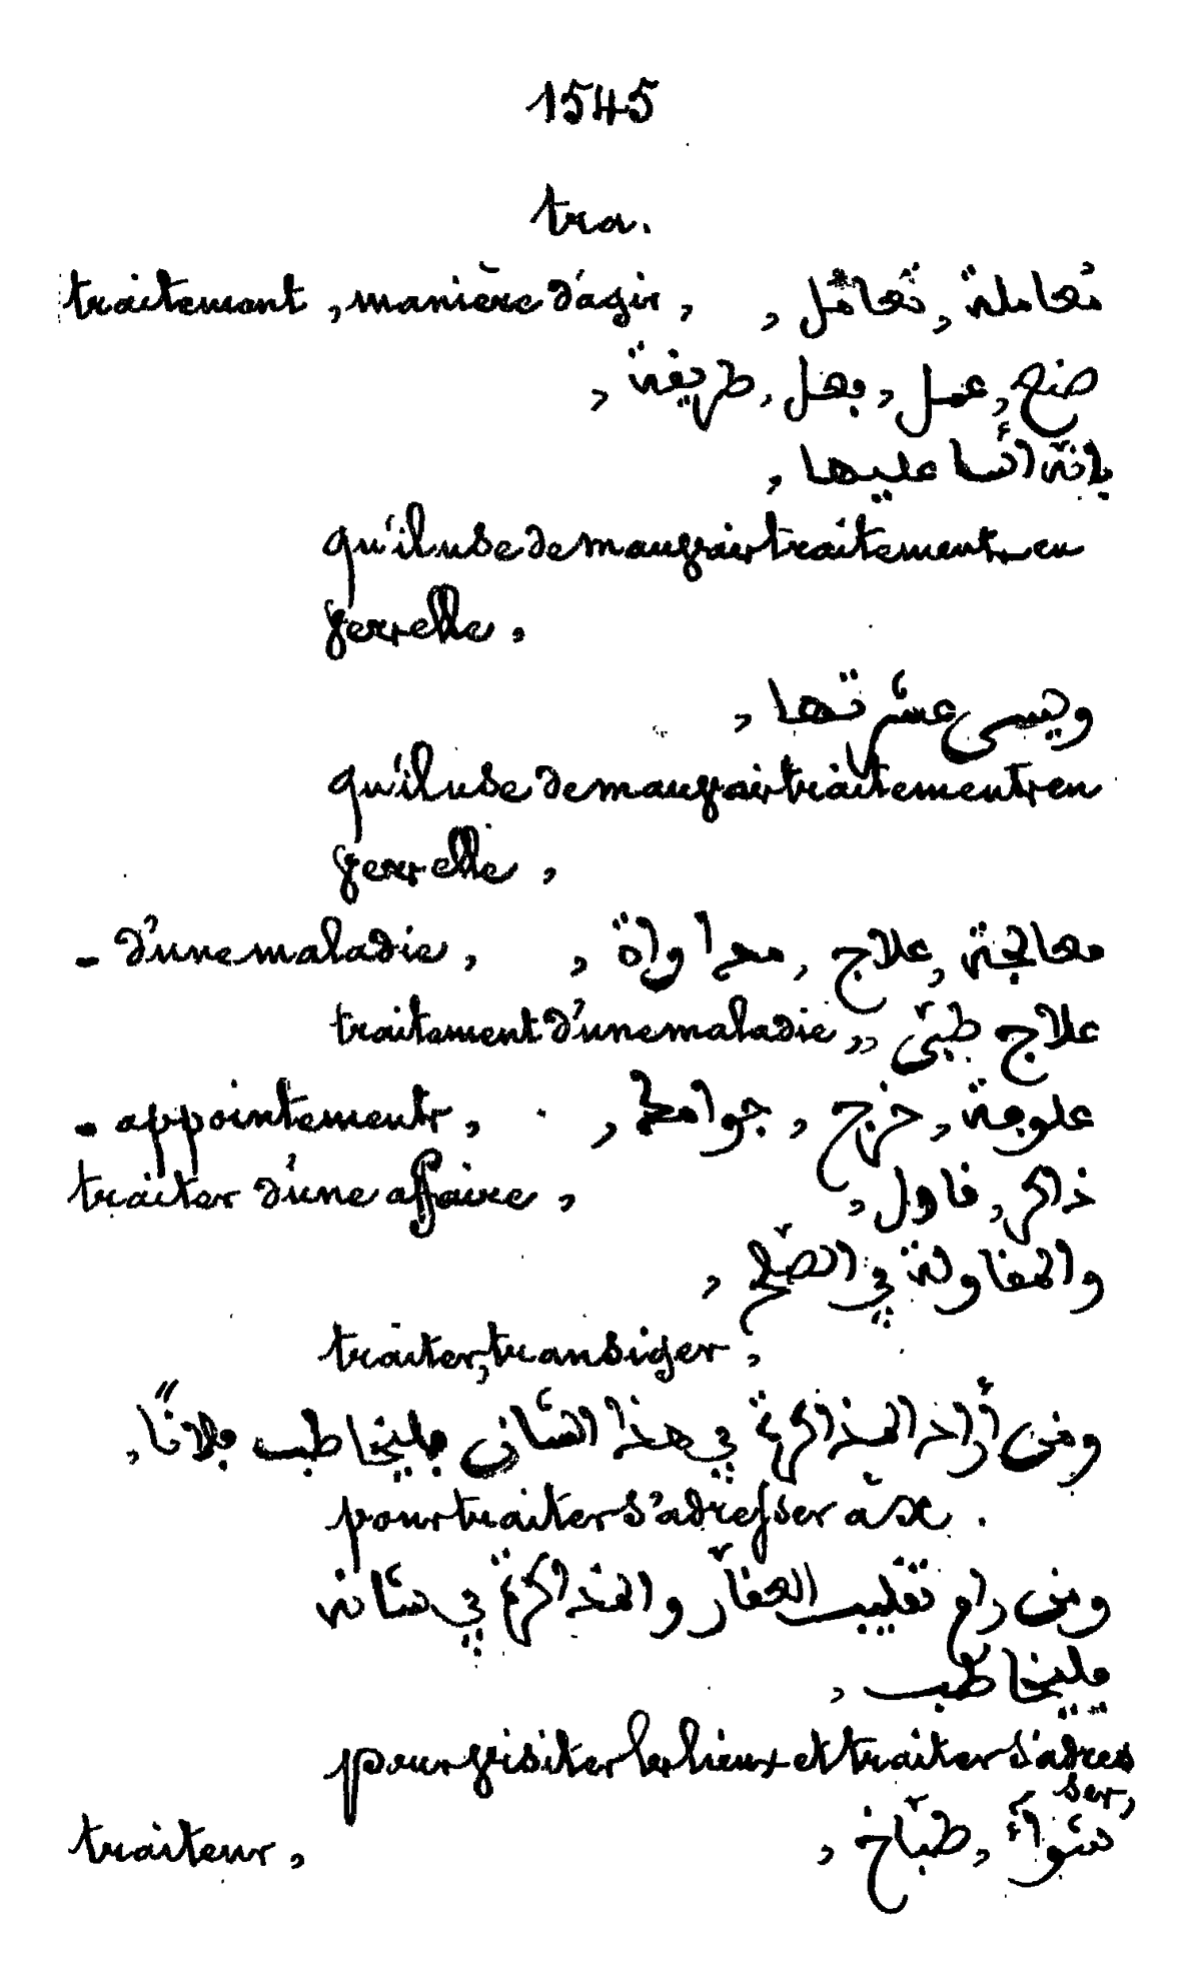 1545
tra.
traitement, manière d'agir, مُعاملة, تَعامُل,
صنع, عمل, فعل, طريقة,
بانّه أسا عليها,
qu'il use de mauvais traitements en
vers elle,
ويسى عشرتها,
qu'il use de mauvais traitements en
vers elle,
- d'une maladie, معالجة, علاج, مداواة,
traitement d'une maladie,, علاج طبّى
- appointements, علوفة, خرج, جوامك,
traiter d'une affaire, ذاكر, قاول,
والمقاولة في الصّلح,
traiter, transiger,
ومن أراد المذاكرة في هذا الشان فليخاطب فلانًا,
pour traiter s'adresser à x.
ومن رام تقليب العقّار والمذاكرة في شانه
فليخاطب,
pour visiter les lieux et traiter s'adres
ser,
traiteur, شوآء, طبّاخ,